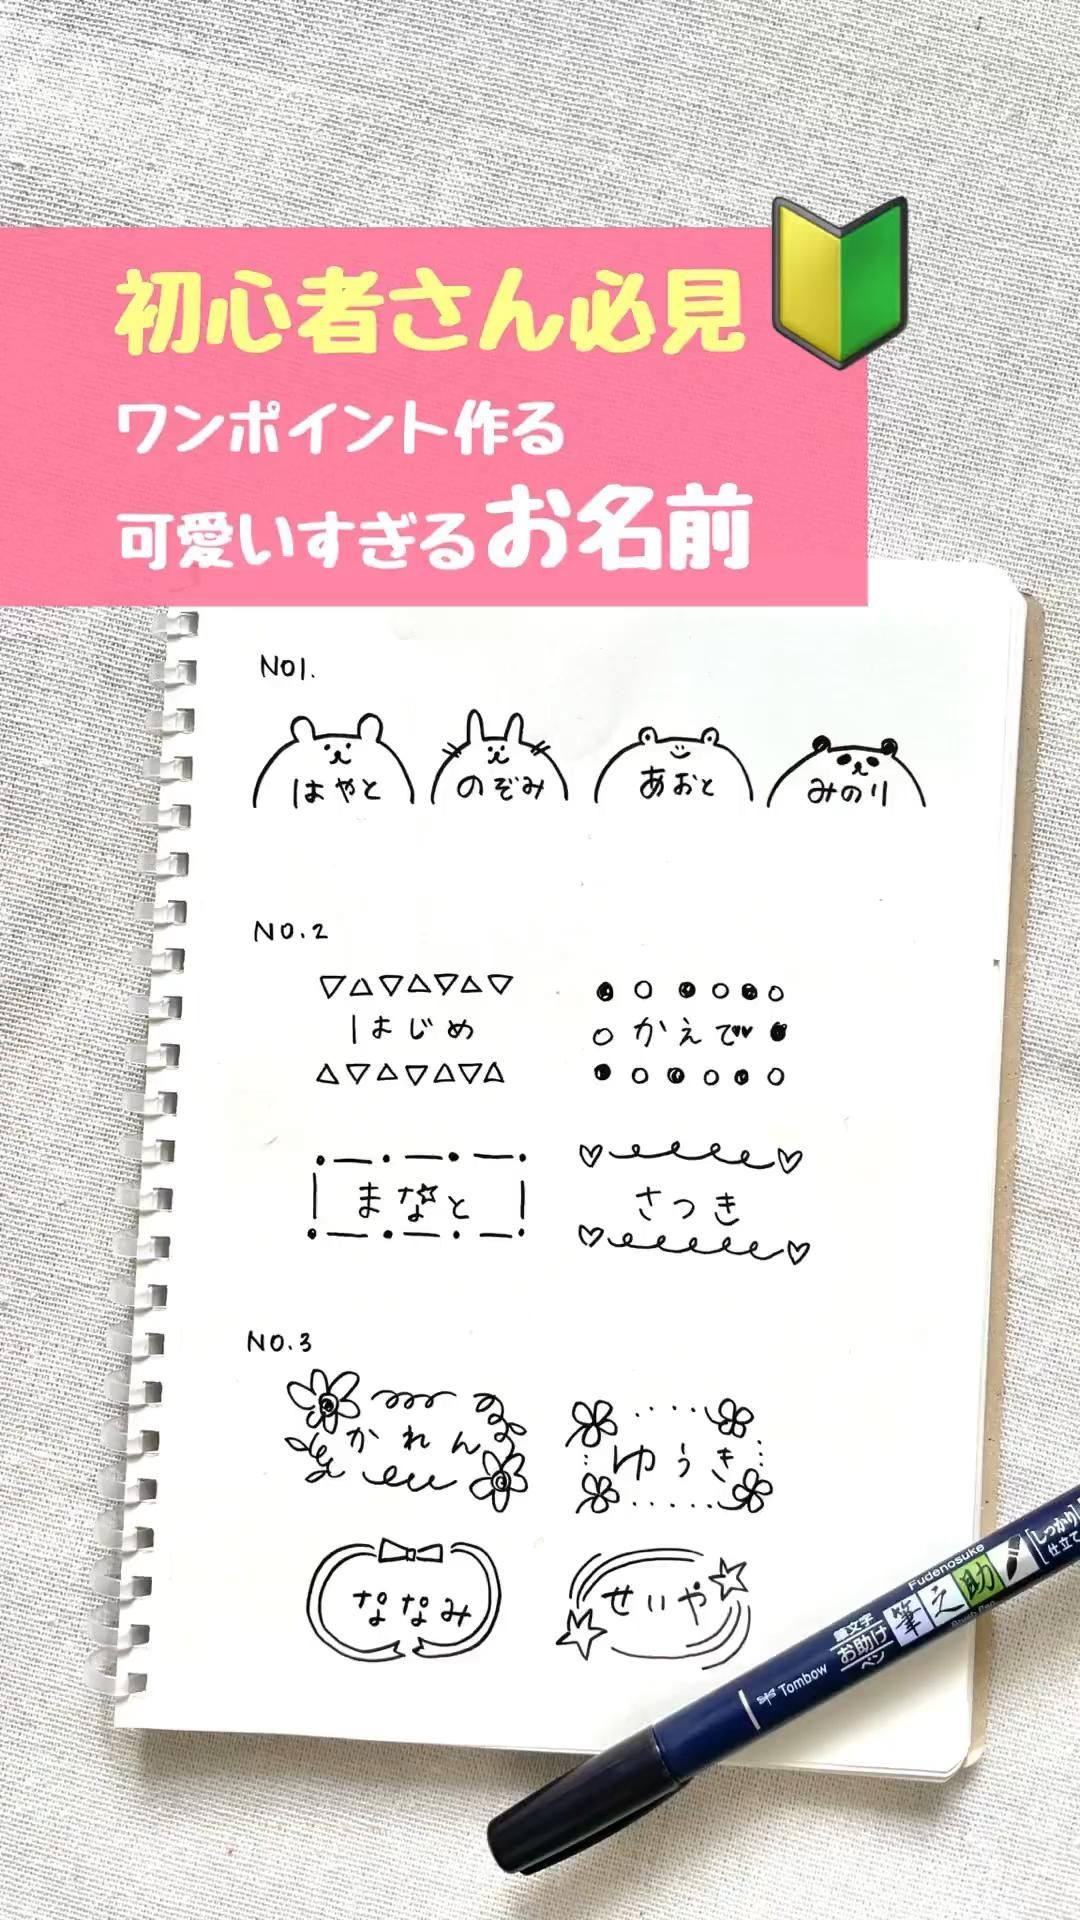 初心者さん必見
ワンポイント作る
可愛いすぎるお名前
NO1.
はやと のぞみ あおと みのり
NO.2
はじめ かえで
まなと さつき
NO.3
かれん ゆうき
ななみ せいや
Fudenosuke
[しっかり]
仕立て
筆之助
Brush Pen
筆文字
お助け
ペン
Tombow